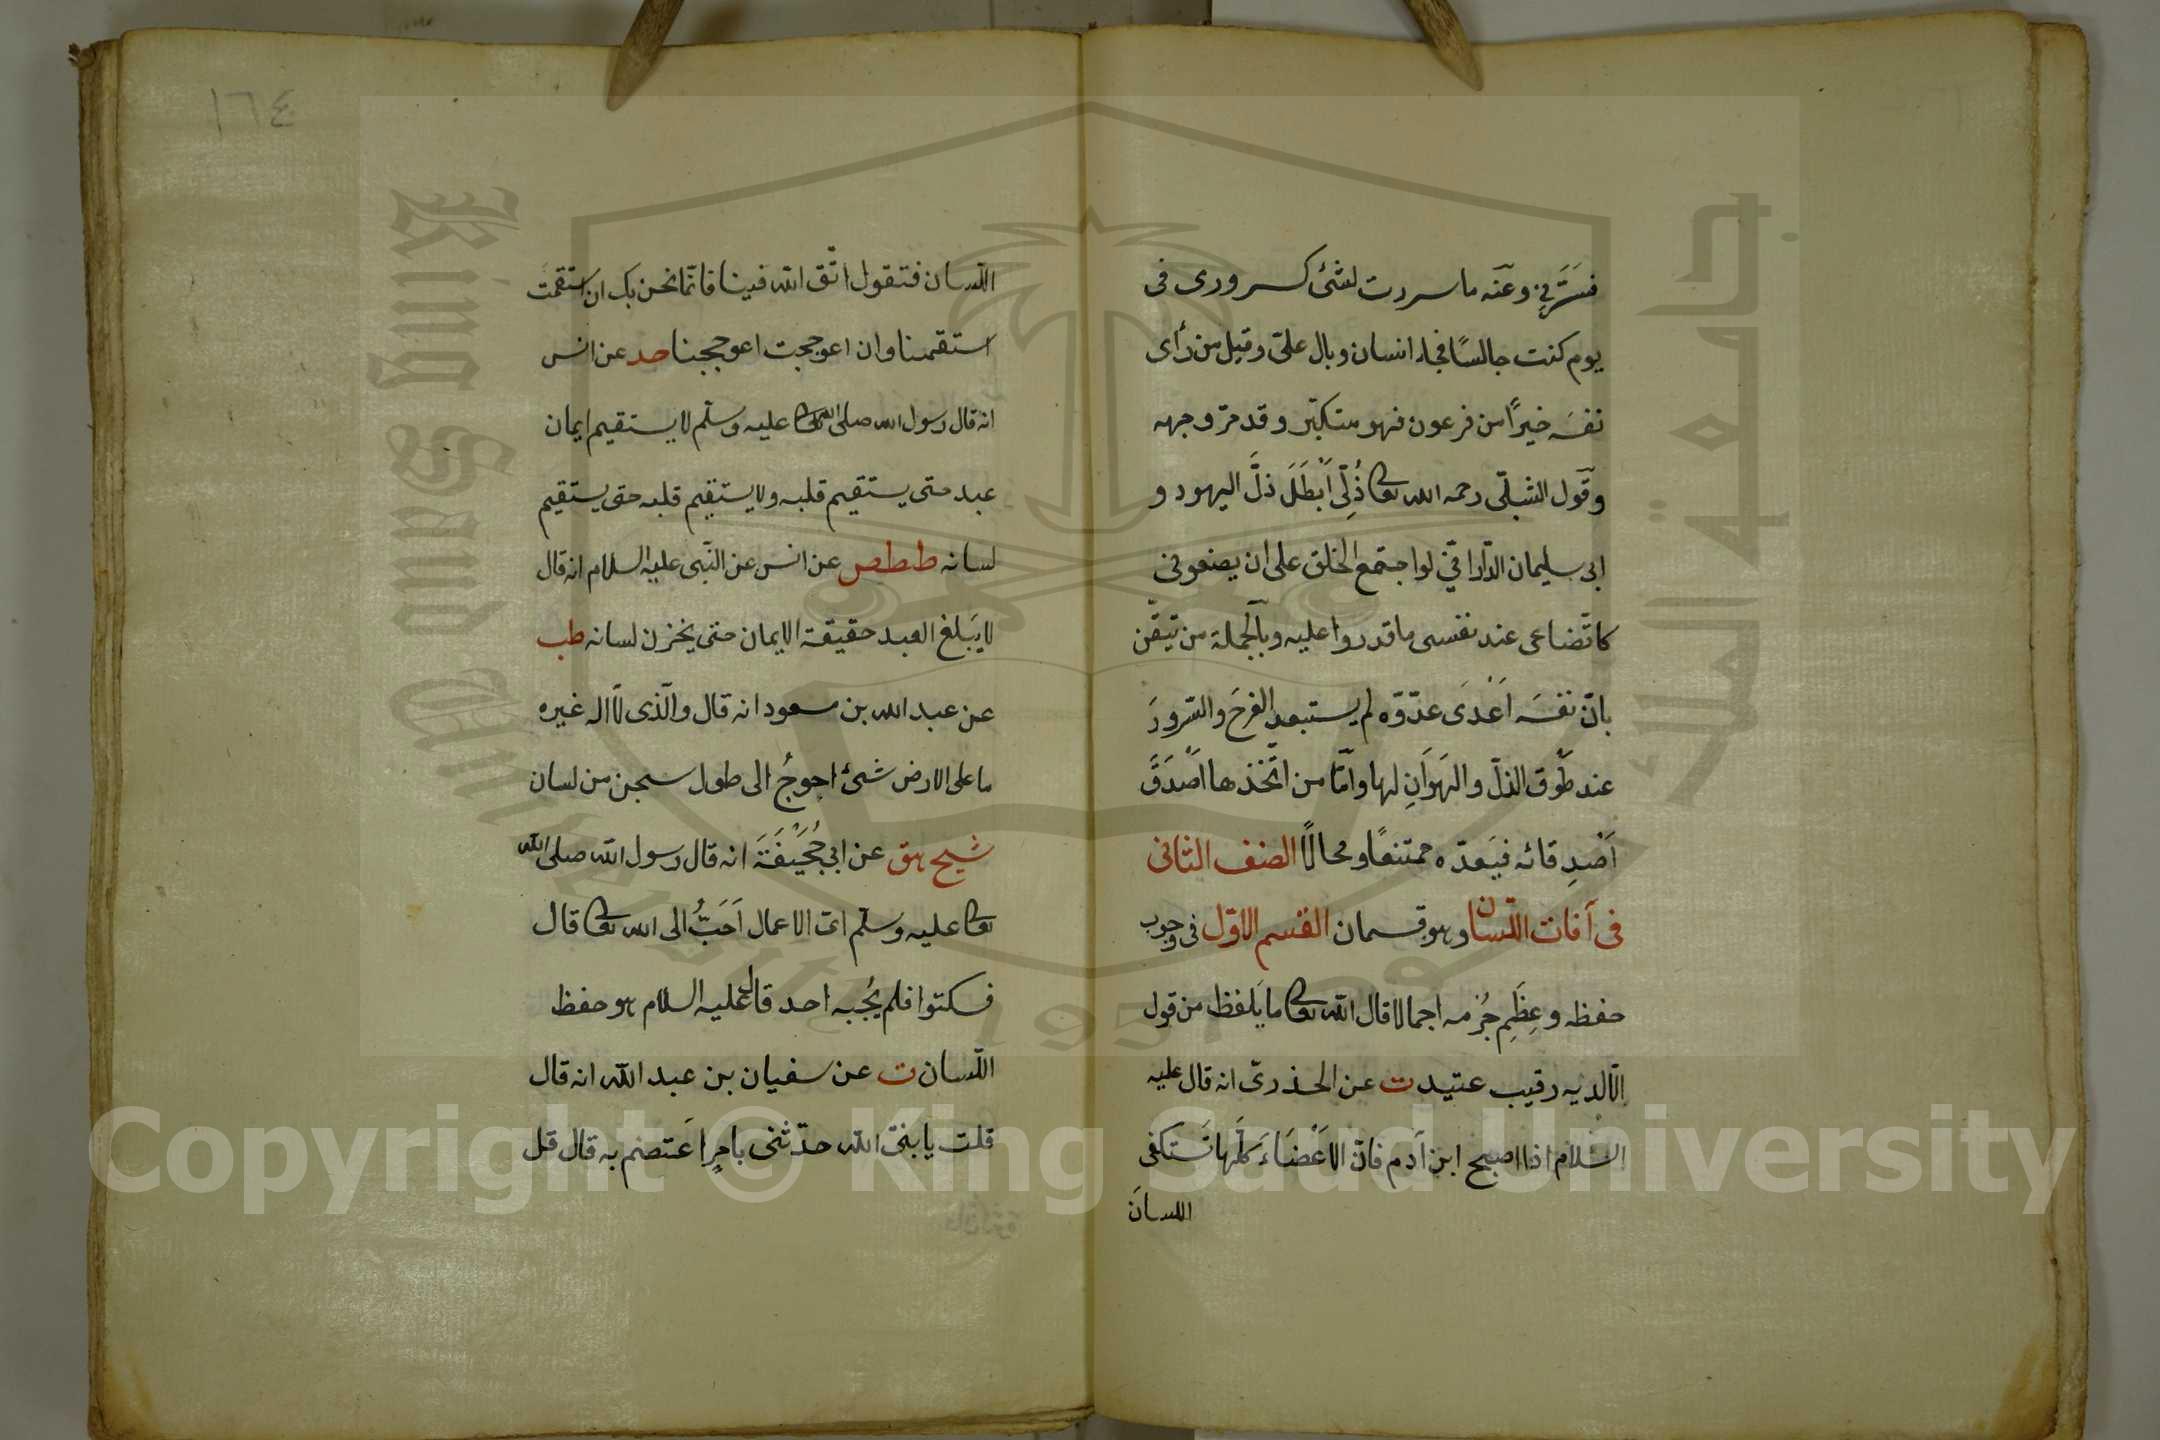 فسرني وعنه ما سررت لشئ كسرورى فى
يوم كنت جالسًا فجاء انسان وبال علىّ وقيل من رأى
نفسه خيرًا من فرعون فهو متكبّر وقد مرّ وجهه
وقول الشبلّى رحمه الله تعالى ذُلِّى اَبْطَلَ ذلَّ اليهود و
ابى سليمان الدّارانىّ لو اجتمع الخلق على ان يضعونى
كاتّضاعى عند نفسى ما قدروا عليه وبالجملة من تيّقن
بانّ نفسَه اَعْدَى عدّوّه لم يستبعد الفرحَ والسّرورَ
عند طَوْق الذلّ والهَوَانِ لها وامّا من اتّخذها اَصْدَقَ
اَصْدِقائه فيَعدّه ممتنعًا ومحالًا الصنف الثانى
فى آفات اللّسان وهو قسمان القسم الاوّل فى وجوب
حفظه وعِظَمِ جُرْمه اجمالا قال الله تعالى ما يَلفظ من قول
الّا لديه رقيب عتيد ت عن الخذرىّ انه قال عليه
السّلام اذا اصبح ابن آدم فانّ الاَعْضَاءَ كلَّها تَستكفى
اللسانَ
١٦٤
اللّسان فتقول اتّق الله فينا فانّما نحن بك ان استقمت
استقمنا وان اعوججت اعوججنا حد عن انس
انه قال رسول الله صلى الله تعالى عليه وسلّم لا يستقيم ايمان
عبد حتى يستقيم قلبه ولا يستقيم قلبه حتى يستقيم
لسانه ططص عن انس عن النّبى عليه السلام انه قال
لا يَبلغ العبد حقيقة الايمان حتى يخزن لسانه طب
عن عبد الله بن مسعود انه قال والّذى لا اله غيره
ما على الارض شئ احوجُ الى طول سجن من لسان
شيح هق عن ابى جُحَيْفَةَ انه قال رسول الله صلى الله
تعالى عليه وسلّم اىّ الاعمال اَحَبُّ الى الله تعالى قال
فسكتوا فلم يُجُبه احد قال عليه السلام هو حفظ
اللّسان ت عن سفيان بن عبد الله انه قال
قلت يا نبىّ الله حدّثنى بامرٍ اَعتصم به قال قل
Copyright © King Saud University
King Saud University
جامعة الملك سعود
1957